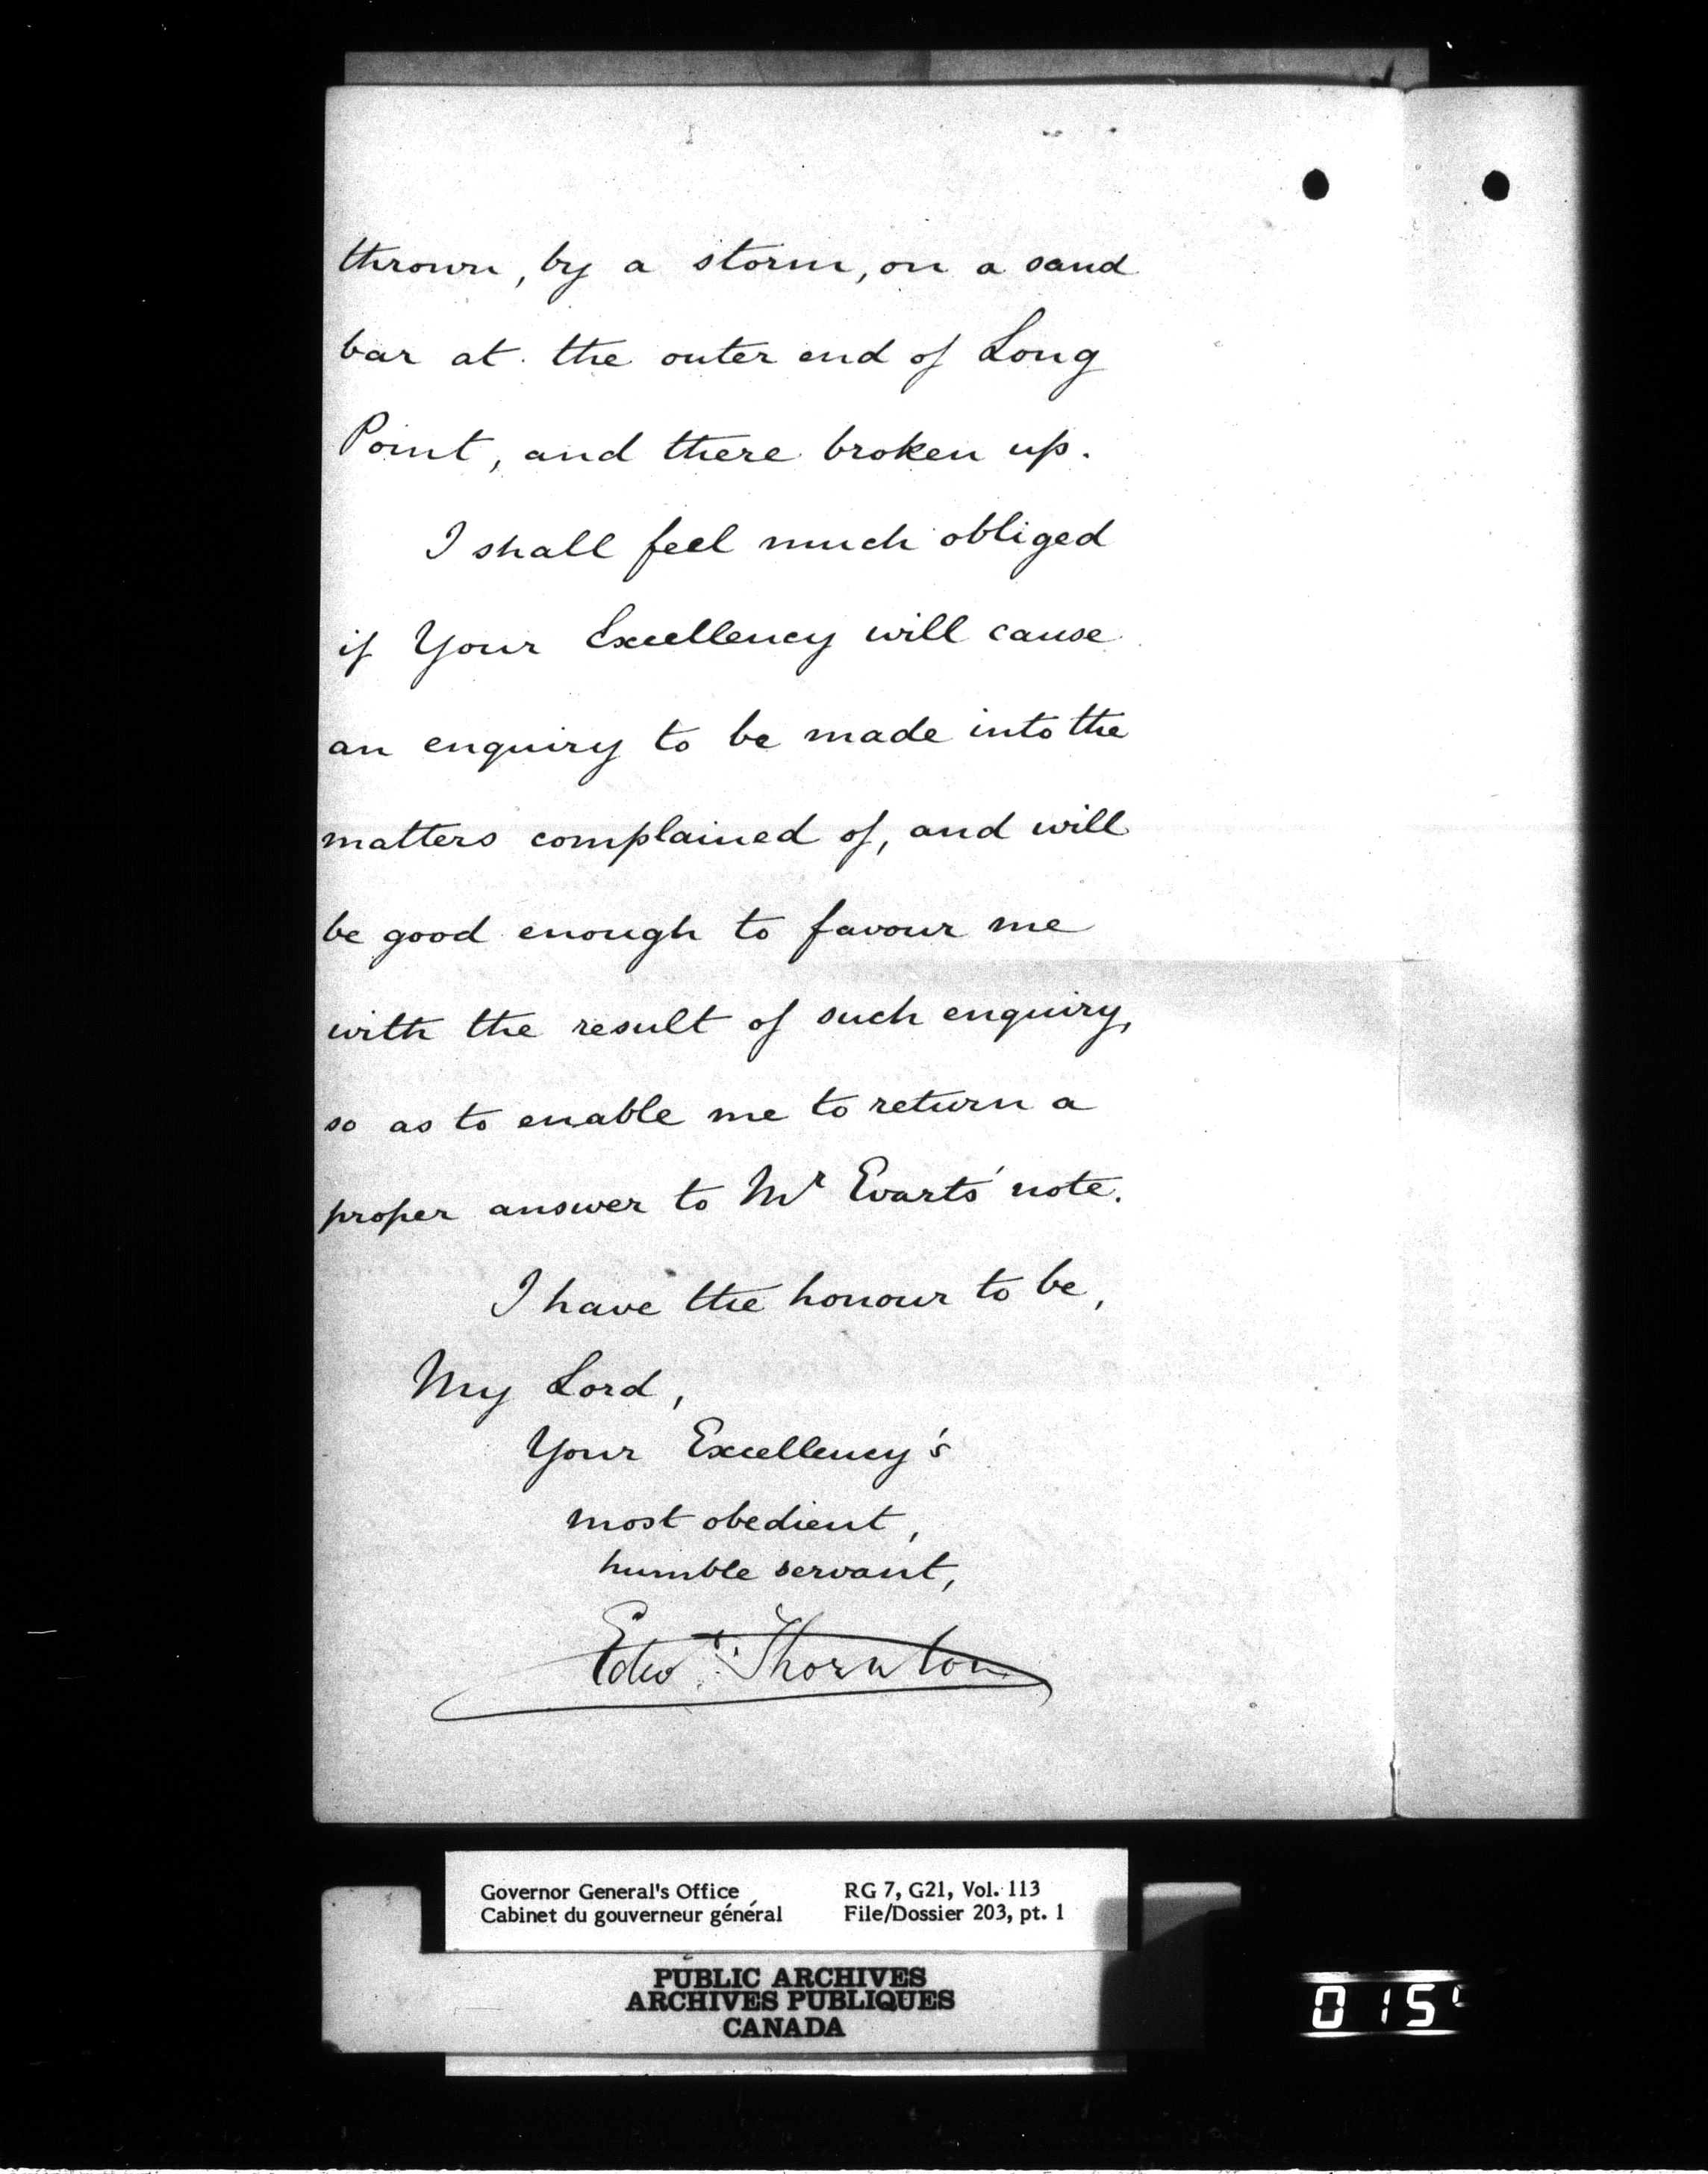 thrown, by a storm, on a sand
bar at the outer end of Long
Point, and there broken up.
I shall feel much obliged
if Your Excellency will cause
an enquiry to be made into the
matters complained of, and will
be good enough to favour me
with the result of such enquiry,
so as to enable me to return a
proper answer to Mr Evarts' note.
I have the honour to be,
My Lord,
Your Excellency's
most obedient,
humble servant,
Edwd Thornton
Governor General's Office
Cabinet du gouverneur général
RG 7, G21, Vol. 113
File/Dossier 203, pt. 1
PUBLIC ARCHIVES
ARCHIVES PUBLIQUES
CANADA
015